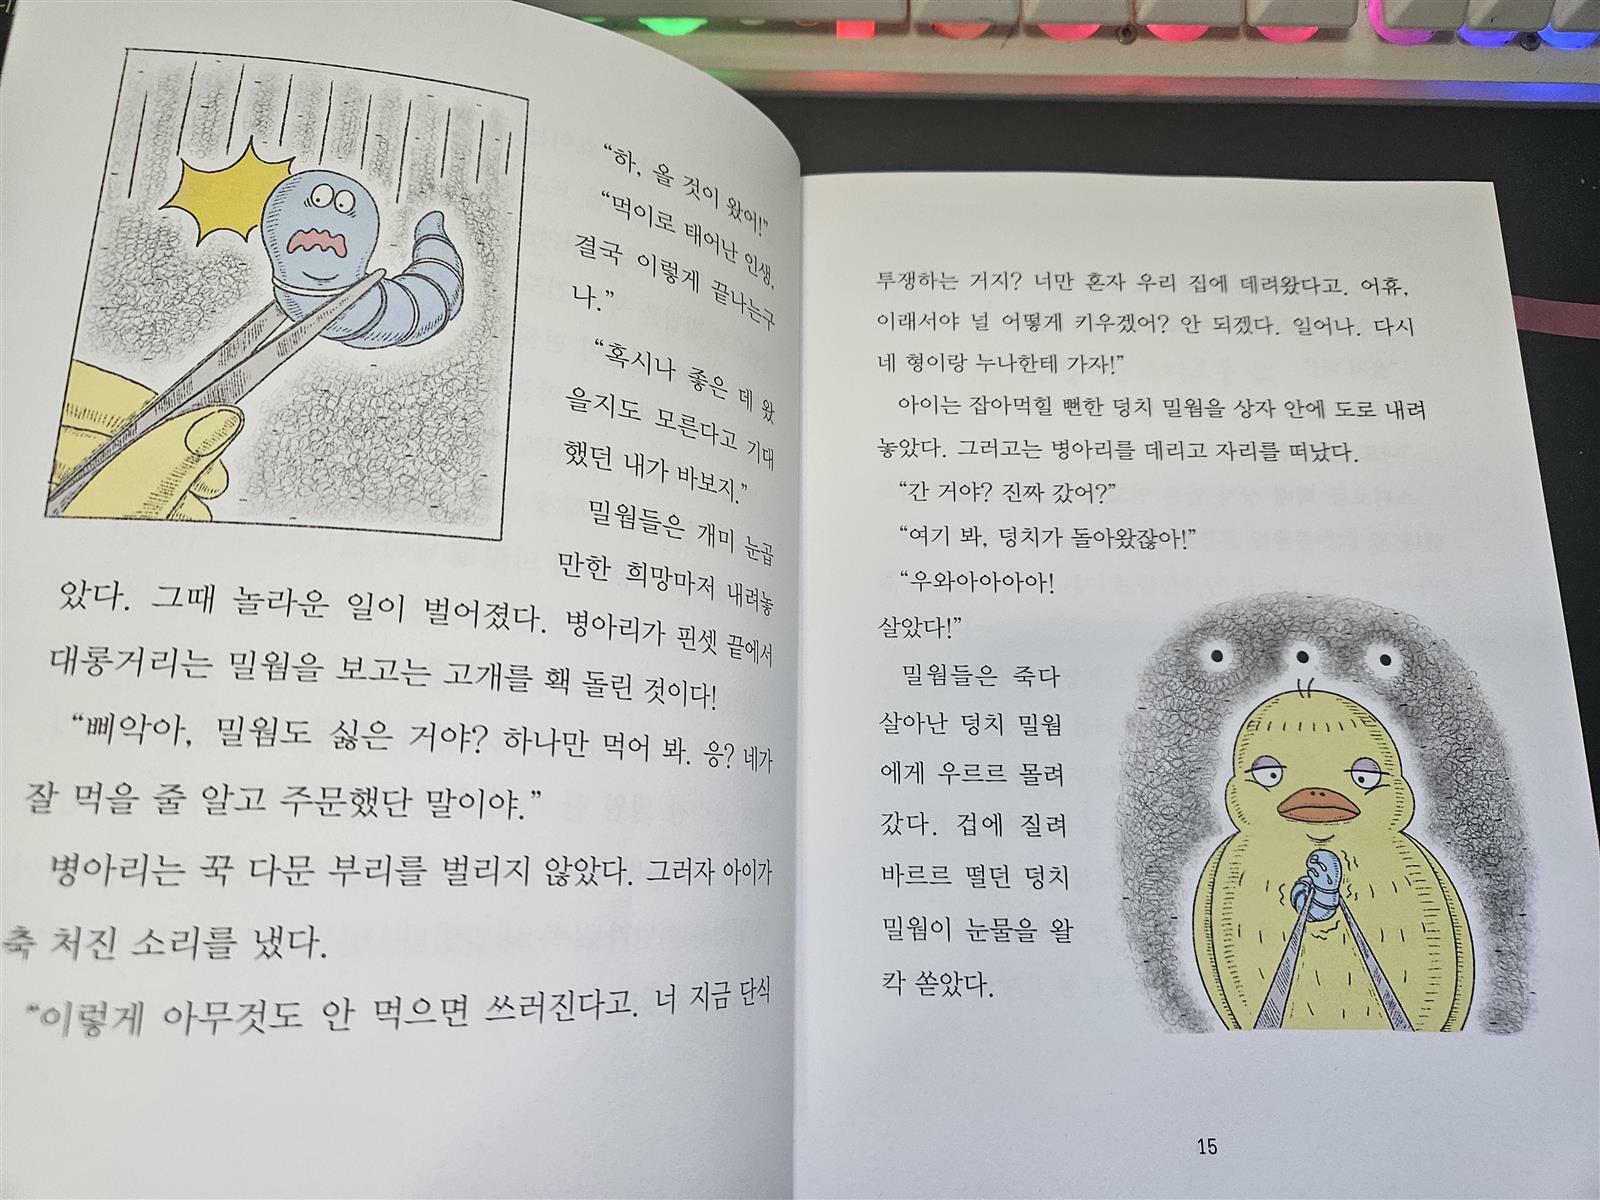 “하, 올 것이 왔어!”
“먹이로 태어난 인생,
결국 이렇게 끝나는구
나.”
“혹시나 좋은 데 왔
을지도 모른다고 기대
했던 내가 바보지.”
밀웜들은 개미 눈곱
만한 희망마저 내려놓
았다. 그때 놀라운 일이 벌어졌다. 병아리가 핀셋 끝에서
대롱거리는 밀웜을 보고는 고개를 홱 돌린 것이다!
“삐악아, 밀웜도 싫은 거야? 하나만 먹어 봐. 응? 네가
잘 먹을 줄 알고 주문했단 말이야.”
병아리는 꾹 다문 부리를 벌리지 않았다. 그러자 아이가
축 처진 소리를 냈다.
“이렇게 아무것도 안 먹으면 쓰러진다고. 너 지금 단식
투쟁하는 거지? 너만 혼자 우리 집에 데려왔다고. 어휴,
이래서야 널 어떻게 키우겠어? 안 되겠다. 일어나. 다시
네 형이랑 누나한테 가자!”
아이는 잡아먹힐 뻔한 덩치 밀웜을 상자 안에 도로 내려
놓았다. 그러고는 병아리를 데리고 자리를 떠났다.
“간 거야? 진짜 갔어?”
“여기 봐, 덩치가 돌아왔잖아!”
“우와아아아아!
살았다!”
밀웜들은 죽다
살아난 덩치 밀웜
에게 우르르 몰려
갔다. 겁에 질려
바르르 떨던 덩치
밀웜이 눈물을 왈
칵 쏟았다.
15